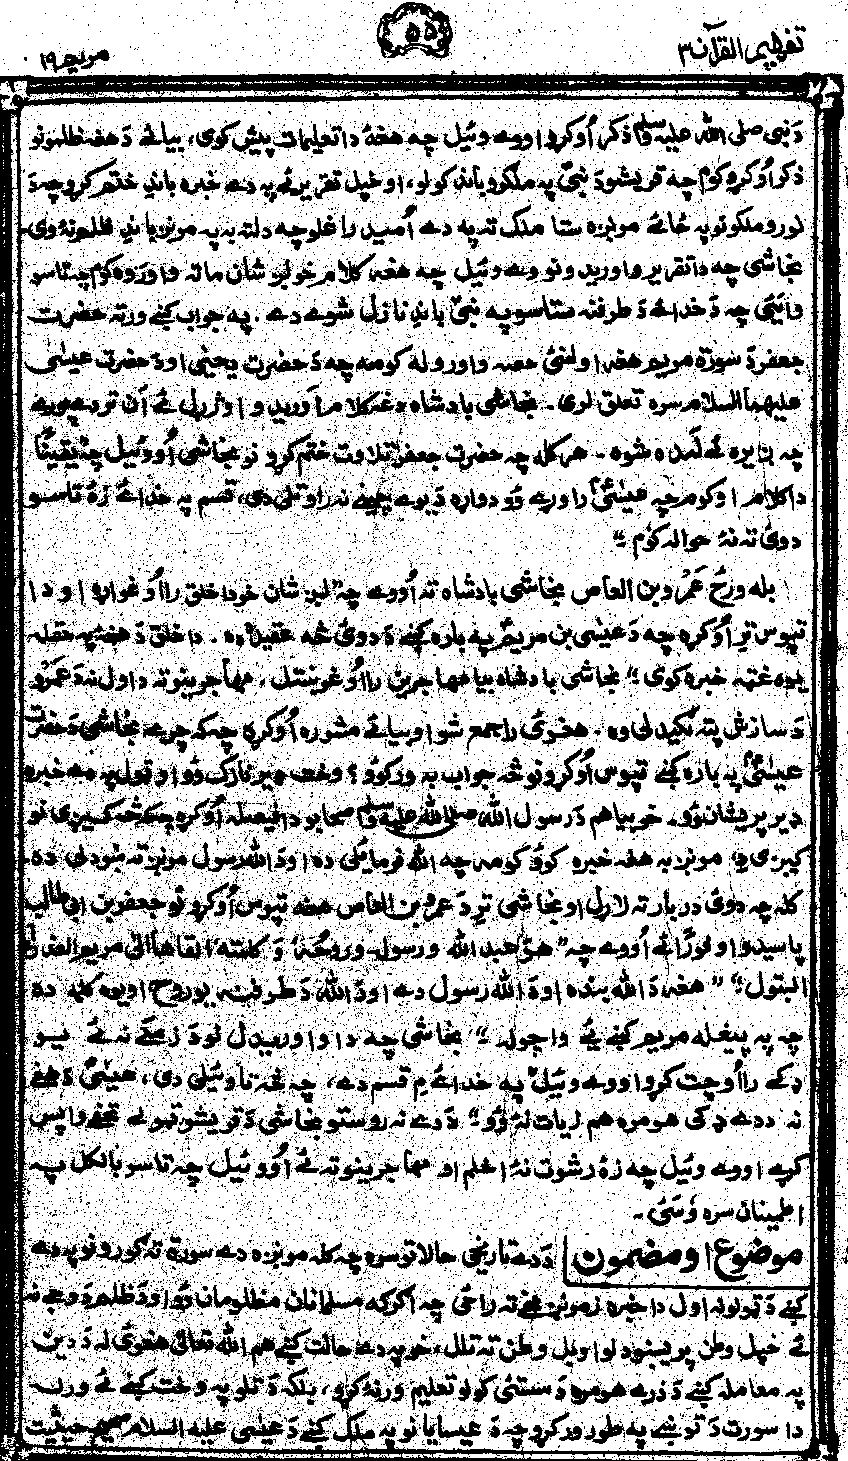 تفهيم القرآن ۳
۵۵
مريم ۱۹
دَ نبی صلی الله عليه وسلم ذکر اُوکړو او وے وئيل چه هغهٔ دا تعليمات پيش کوی، بيائے دَ هغه ظلمونو
ذکر اُوکړو کوم چه قريشو دَ نبیؐ په ملګرو باندِ کولو، او خپل تقرير ئے په دے خبره باندِ ختم کړو چه دَ
نورو ملکونو په ځائے مونږه ستا ملک ته په دے اُميد راغلو چه دلته به په مونږ باندِ ظلم نهٔ وی
نجاشی چه دا تقرير واوريد و نو وے وئيل چه هغه کلام خو لږ شان ماته واوروه کوم چه تاسو
وايئی چه دَ خدائے دَ طرفنه ستاسو په نبیؐ باندِ نازل شوے دے. په جواب کښے ورته حضرت
جعفر دَ سورة مريم هغه اولنئی حصه واوروله کومه چه دَ حضرت يحيٰی او دَ حضرت عيسٰی
عليهما السلام سره تعلق لری. نجاشی بادشاه دغه کلام اَوريد و او ژړل ئے اٰن تر دے پورے
چه ږيره ئے لَمده شوه. هر کله چه حضرت جعفرؓ تلاوت ختم کړو نو نجاشی اُووئيل چه يقيناً
دا کلام او کوم چه عيسٰیؑ راوړے وُو دواړه دَ يوے چينے نه راوتلی دی، قسم په خدائے زهٔ تاسو
دوئ ته نهٔ حواله کوم؟"
بله ورځ عَمرو بن العاص نجاشی بادشاه ته اُووے چه لږ شان خو دا خلق رااُوغواړه او دا
تپوس ترِ اُوکړه چه دَ عيسٰی بن مريمؑ په باره کښے دَ دوئ څه عقيده ده. دا خلق دَ هغهٔ په حقله
يوه غټه خبره کوی؟" نجاشی بادشاه بيا مهاجرين رااُوغوښتل، مهاجرينو ته دا ول نه دَ عَمرو
دَ سازش پته لګيدلی وه. هغوئ راجمع شو او بيائے مشوره اُوکړه چه که چرے نجاشی دَ حضرت
عيسٰیؑ په باره کښے تپوس اُوکړو نو څه جواب به ورکوُو؟ وخت ډير نازک وُو او ټول په دے خبره
ډير پريشان وُو. خو بيا هم دَ رسول الله صلی الله عليه وسلم صحابو دا فيصله اُوکړه چه څه کيږی نو
کيږی دِ، مونږ به هغه خبره کوُو کومه چه الله فرمائيلی ده او دَ الله رسول مونږ ته ښودلی ده.
کله چه دوئ دربار ته لاړل او نجاشی ترِ دَ عمرو بن العاص هغه تپوس اُوکړو نو جعفر بن ابی طالب
پاسيدو او فوراً ئے اُووے چه "هو عبد الله ورسوله وروحُهٗ وَ کلمتهٗ القاها الیٰ مريم العذراء
البتول؟" "هغه دَ الله بنده او دَ الله رسول دے او دَ الله دَ طرفنه يو روح او يوه کلمه ده
چه په پيغله مريم کښے ئے واچوله؟" نجاشی چه دا واوريدل نو دَ زمکے نه ئے يو
ډکے رااُوچت کړو او وے وئيل "په خدائے مِ قسم دے، چه څه تاسو وئيلی دی، عيسٰیؑ دَ هغے
نه ددے ډکی هومره هم زيات نهٔ وُو" دَ دے نه روستو نجاشی دَ قريشو تبولے تحفے واپس
کړے او وے وئيل چه زهٔ رشوت نهٔ اخلم او مهاجرينو ته ئے اُووئيل چه تاسو بالکل په
اطمينان سره وُسئی.
موضوع او مضمون دَ دے تاريخی حالاتو سره چه کله مونږه دے سورة ته ګورو نو په دے
کښے دَ ټولو نه اول دا خبره زمونږ مخے ته راځی چه اګرکه مسلمانان مظلومان وُو او دَ ظلم دَ وجے نه
ئے خپل وطن پريښودلو او بل وطن ته تلل، خو په دے حالت کښے هم الله تعالیٰ هغوئ له دَ دين
په معامله کښے دَ ذرے هومره دَ سستئی کولو تعليم ورنهٔ کړو، بلکه دَ تلو په وخت کښے ئے ورله
دا سورت دَ توښے په طور ورکړو چه دَ عيسايانو په ملک کښے دَ عيسٰی عليه السلام صحيح حيثيت